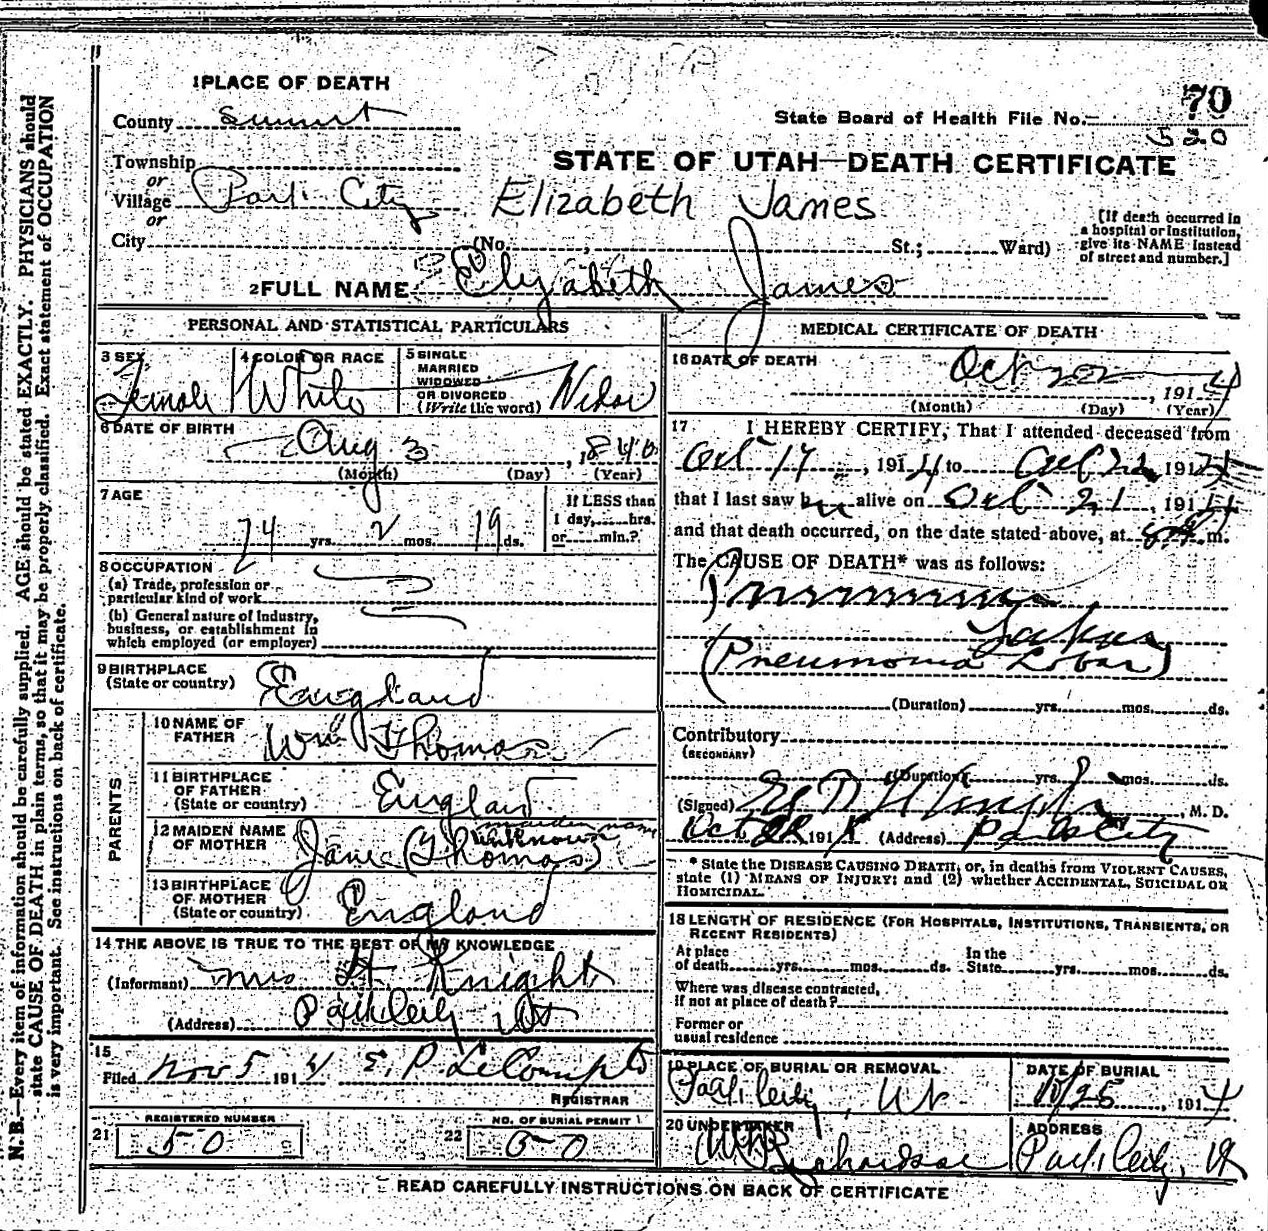 1 PLACE OF DEATH
County Summit
Township
or
Village Park City
or
City (No. , St.; Ward)
70
State Board of Health File No.
520
STATE OF UTAH—DEATH CERTIFICATE
Elizabeth James
[If death occurred in
a hospital or institution,
give its NAME instead
of street and number.]
2 FULL NAME Elizabeth James
PERSONAL AND STATISTICAL PARTICULARS
3 SEX Female
4 COLOR OR RACE White
5 SINGLE
MARRIED
WIDOWED
OR DIVORCED
(Write the word) Widow
6 DATE OF BIRTH
Aug 3, 1840
(Month) (Day) (Year)
7 AGE
74 yrs. 2 mos. 19 ds.
If LESS than
1 day, hrs.
or min.?
8 OCCUPATION
(a) Trade, profession or
particular kind of work
(b) General nature of industry,
business, or establishment in
which employed (or employer)
9 BIRTHPLACE
(State or country) England
PARENTS
10 NAME OF
FATHER Wm Thomas
11 BIRTHPLACE
OF FATHER
(State or country) England
12 MAIDEN NAME
OF MOTHER Jane (Thomas) maiden name unknown
13 BIRTHPLACE
OF MOTHER
(State or country) England
14 THE ABOVE IS TRUE TO THE BEST OF MY KNOWLEDGE
(Informant) Mrs H Knight
(Address) Park City Ut
15
Filed Nov 5 1914 E. P. LeCompte
REGISTRAR
21 REGISTERED NUMBER
50
22 NO. OF BURIAL PERMIT
50
MEDICAL CERTIFICATE OF DEATH
16 DATE OF DEATH
Oct 22, 1914
(Month) (Day) (Year)
17 I HEREBY CERTIFY, That I attended deceased from
Oct 17, 1914 to Oct 22, 1914
that I last saw her alive on Oct 21, 1914
and that death occurred, on the date stated above, at m.
The CAUSE OF DEATH* was as follows:
Pneumonia
(Pneumonia Lobar)
(Duration) yrs. mos. ds.
Contributory
(SECONDARY)
(Duration) yrs. mos. ds.
(Signed) M. D.
Oct 191 (Address) Park City
* State the DISEASE CAUSING DEATH; or, in deaths from VIOLENT CAUSES,
state (1) MEANS OF INJURY; and (2) whether ACCIDENTAL, SUICIDAL OR
HOMICIDAL.
18 LENGTH OF RESIDENCE (FOR HOSPITALS, INSTITUTIONS, TRANSIENTS, OR
RECENT RESIDENTS)
At place
of death yrs. mos. ds.
In the
State yrs. mos. ds.
Where was disease contracted,
if not at place of death?
Former or
usual residence
19 PLACE OF BURIAL OR REMOVAL
Park City, Ut
DATE OF BURIAL
10/25, 1914
20 UNDERTAKER
Richardson
ADDRESS
Park City, Ut
READ CAREFULLY INSTRUCTIONS ON BACK OF CERTIFICATE
N. B.—Every item of information should be carefully supplied. AGE should be stated EXACTLY. PHYSICIANS should
state CAUSE OF DEATH in plain terms, so that it may be properly classified. Exact statement of OCCUPATION
is very important. See instructions on back of certificate.